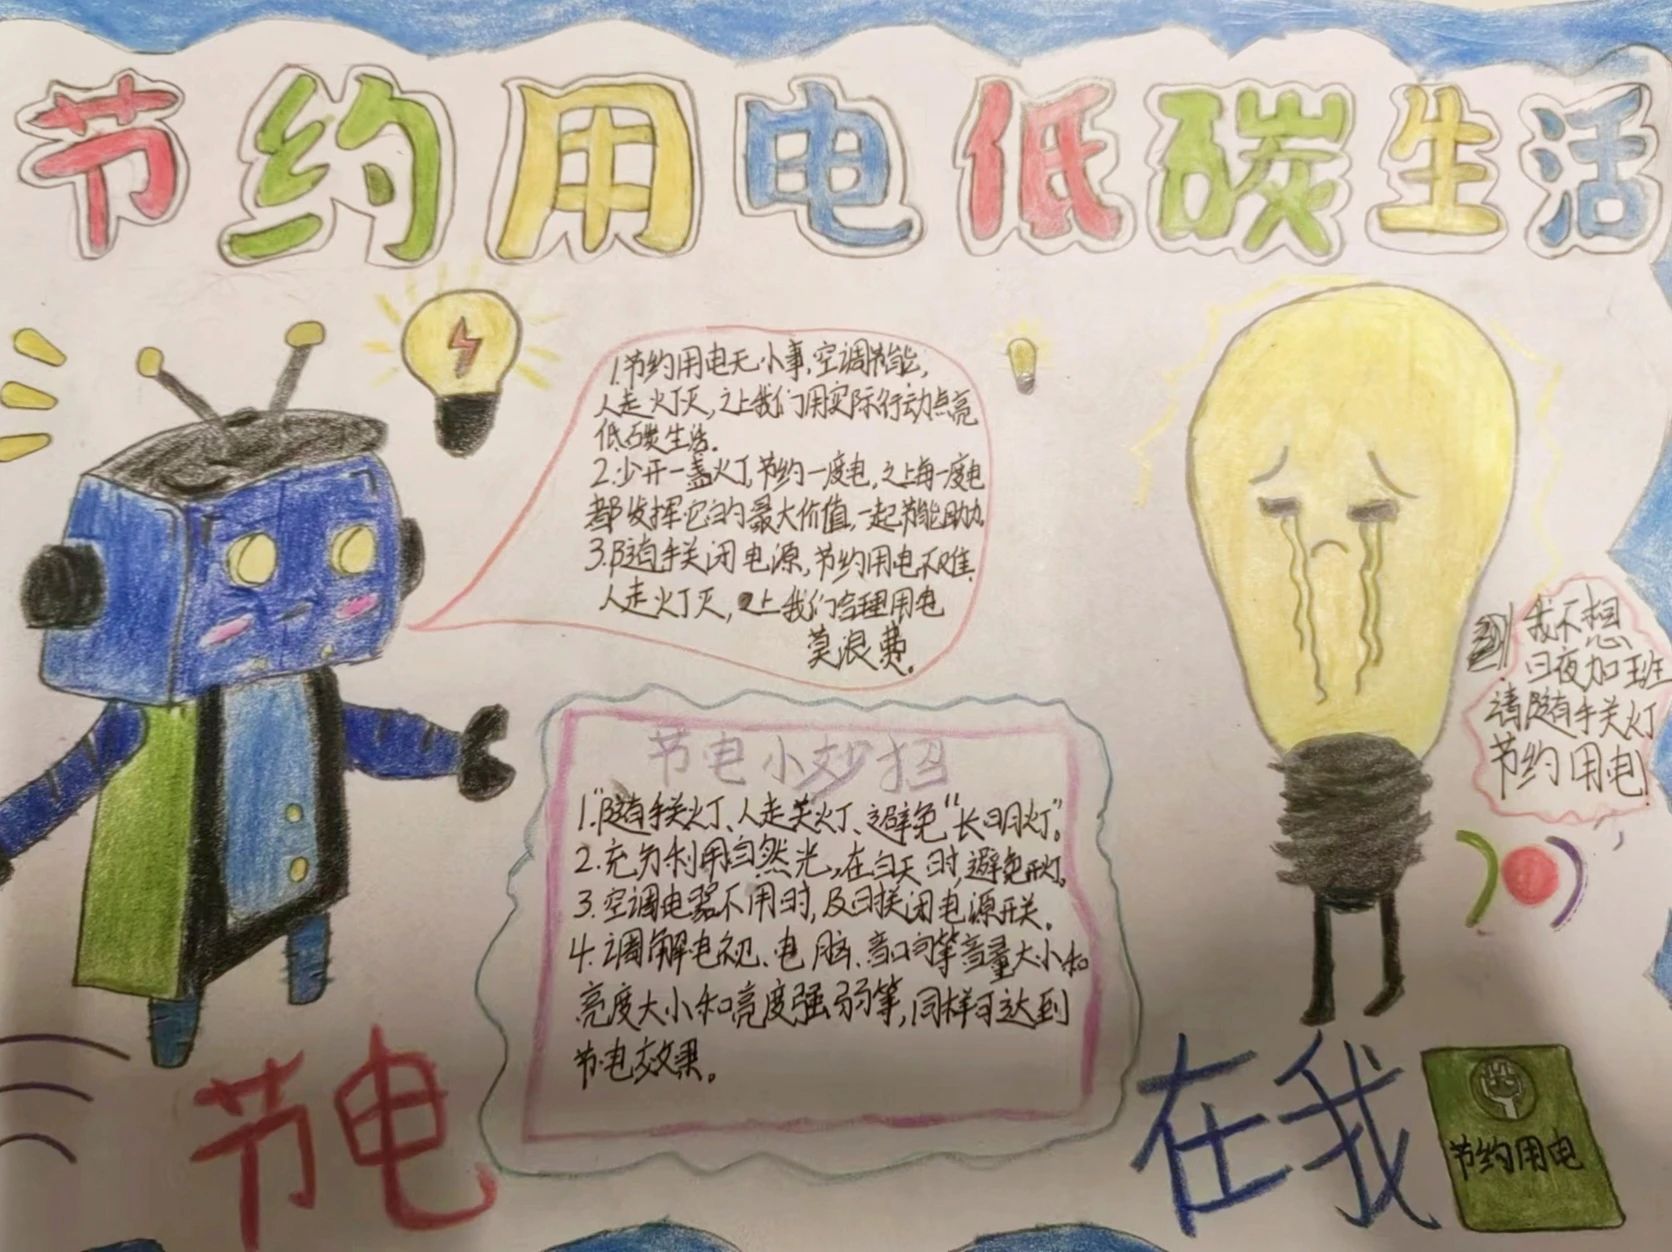 节约用电低碳生活
1.节约用电无小事,空调节能,
人走灯灭,让我们用实际行动点亮
低碳生活。
2.少开一盏灯,节约一度电,让每一度电
都发挥它的最大价值,一起节能助力
3.随手关闭电源,节约用电不难
人走灯灭,让我们合理用电
莫浪费。
我不想
日夜加班
请随手关灯
节约用电!
节电小妙招
1.随手关灯、人走关灯、避免“长明灯”。
2.充分利用自然光,在白天时,避免开灯。
3.空调电器不用时,及时关闭电源开关。
4.调解电视、电脑、音响等音量大小和
亮度大小和亮度强弱等,同样可达到
节电效果。
节电
在我
节约用电